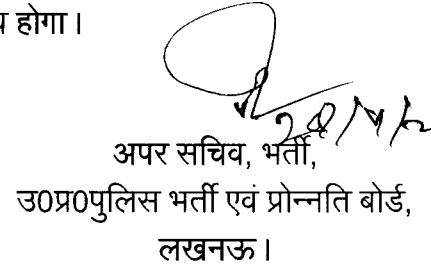 होगा।
अपर सचिव, भर्ती,
उ0प्र0पुलिस भर्ती एवं प्रोन्नति बोर्ड,
लखनऊ।